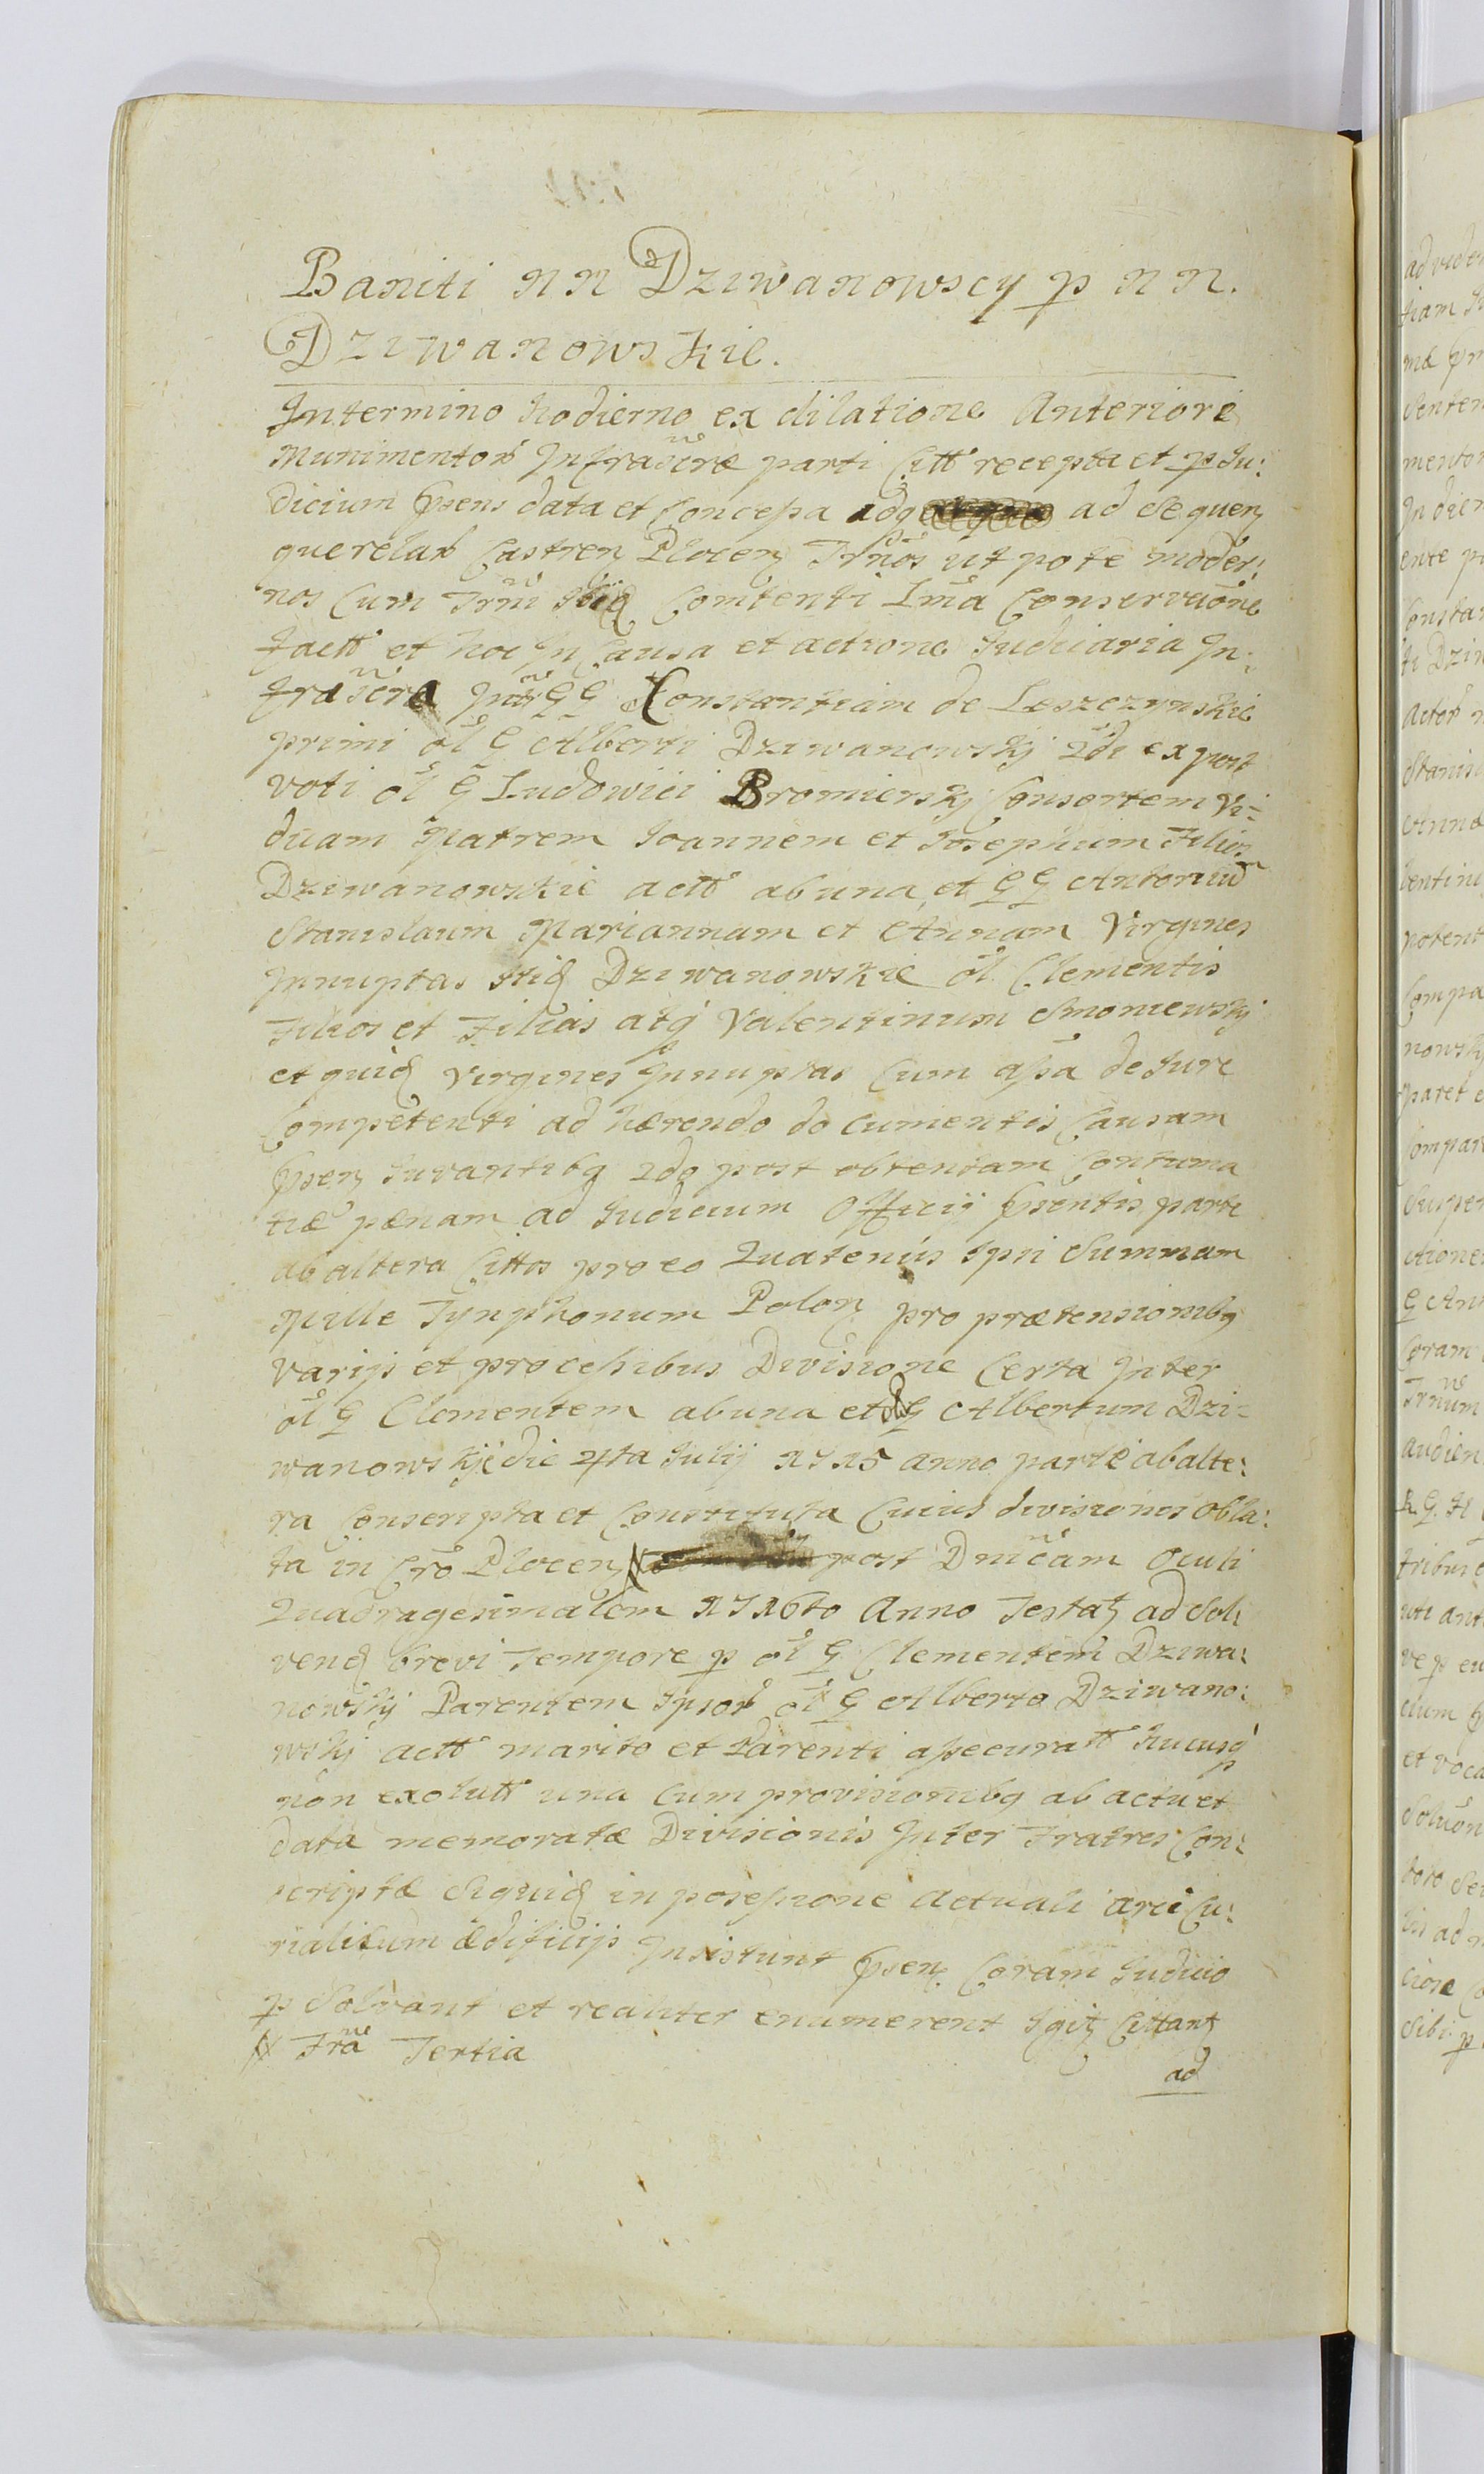 Baniti NN Dziwanowscy p NN.
Dziwanowskie.
Intermino hodierno ex dilatione Anteriori
Munimentor Infrascrae parti Citt recepta et p Iu:
dicium Psens data et Concessa adq ad Sequen
querelar Castren Plocen Trnos utpote moder:
nos Cum Trni Comtenti Conservaone
factt et hoc In Causa et actione Iudiciaria In:
frascra Inr GG Constantiam de Leszczynskie
primi ol G Alberti Dziwanowskj 2di expost
voti ol G Ludowici Bromierskj Consortem Vi:
duam Matrem Ioannem et Iosephum Filios
Dziwanowskie actt abuna et GG Antonium
Stanislaum Mariannam et Annam Virgines
Innuptas Dziwanowskie ol Clementis
Filios et Filias atq Valentinum Smoniewskj
et quid Virgines Innuptas Cum assa de Iure
Competenti ad haerendo documentis Causam
Psen Iuvantibq 2do post obtentam Contuma
tiae paenam ad Iudicium Officij Psentis parte
abaltera Cittos pro eo Quatenus Ipsi Summam
Mille Tynphonum Polon pro praetensionibq
varijs et processibus Divisione Certa Inter
ol G Clementem abuna et ol G Albertum Dzi-
wanowskje die 4ta Iulij 1715 anno parte abalte:
ra Conscripta et Constituta Cuius divisionis obla:
ta in Cro Plocen post Dnicam Oculi
Quadragesimalem 1716to Anno Testat ad Sol
vend brevi Tempore p ol G Clementem Dziwa:
nowskj Parentem Ipsor ol G Alberto Dziwano:
wskj actt marito et Parenti assecuratt hucusq
non exolutt una Cum provisionibq ab actu et
data memoratae Divisionis Inter Fratres Con:
scriptae Siquid in possessione Actuali arei Cu:
rialis cum aedificijs Insistunt Psen Coram Iudicio
p Solvant et realiter enumerent Igit Cittant
Fra Tertia
ad